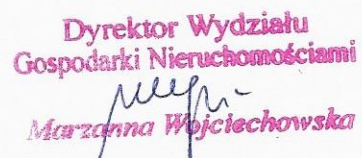 Dyrektor Wydziału
Gospodarki Nieruchomościami
Marzanna Wojciechowska